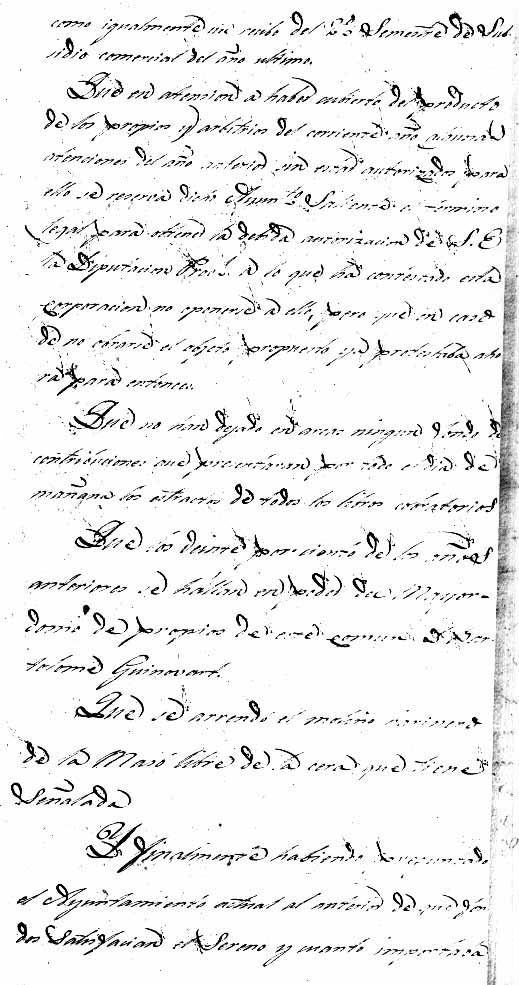 como igualmente un recibo del 2º Semestre de Sub-
sidio comercial del año ultimo.
Que en atencion a haber cubierto del producto
de los propios y arbitrios del corriente año algunas
atenciones del año anterior sin estar autorizados para
ello se reserva dicho Ayunto Saliente el termino
legal para obtener la debida autorizacion de S. E
la Diputacion Provl. a lo que ha contestado esta
corporacion no oponerse a ello, pero que en caso
de no obtener el objeto propuesto ya protestaba aho
ra para entonces.
Que no han dejado en arcas ningun fondo de
contribuciones que presentaran por todo el dia de
mañana los estractos de todos los libros cobratorios
Que los veinte por ciento de los años
anteriores se hallan en poder del Mayor-
domo de propios de este comun Dn Bar-
tolomé Guinovart.
Que se arrendó el molino harinero
de la Masó libre de la cera que tiene
Señalada
Y finalmente habiendo preguntado
el Ayuntamiento actual al anterior de que fon
dos Satisfacian el Sereno y cuanto importaba